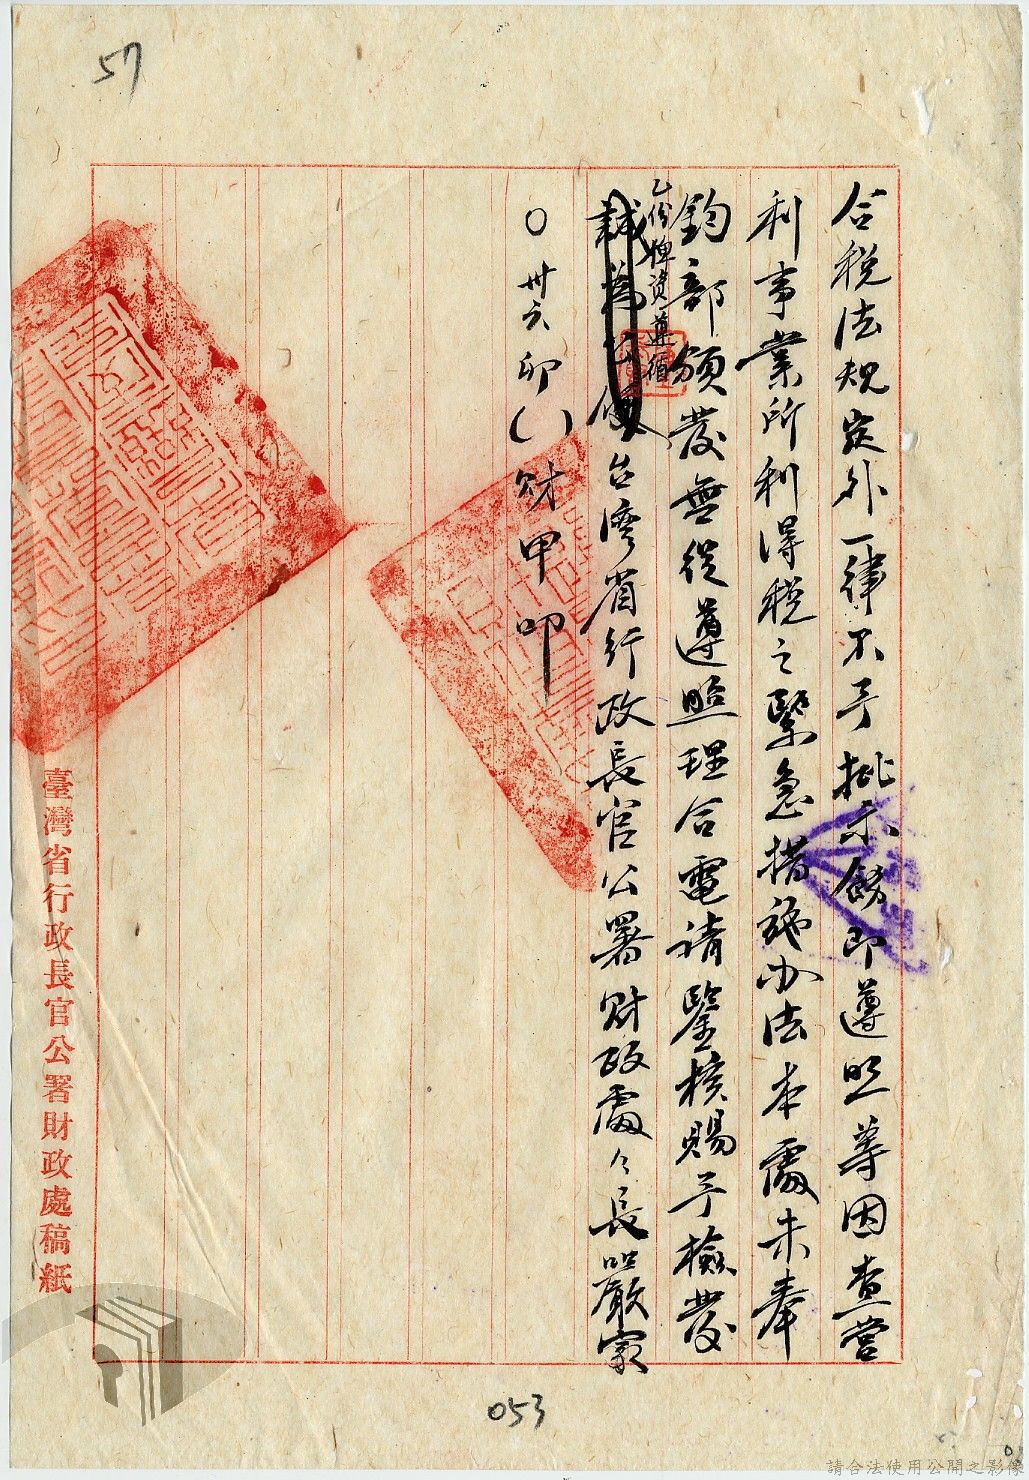 57
合稅法規定外一律不予批示飭即遵照等因查營
利事業所利得稅之緊急措施办法本處未奉
鈞部頒發無從遵照理合電請鑒核賜予檢發
乙份俾資遵循
台灣省行政長官公署財政處々長嚴家
〇卅六卯()財甲叩
臺灣省行政長官公署財政處稿紙
053
請合法使用公開之影像